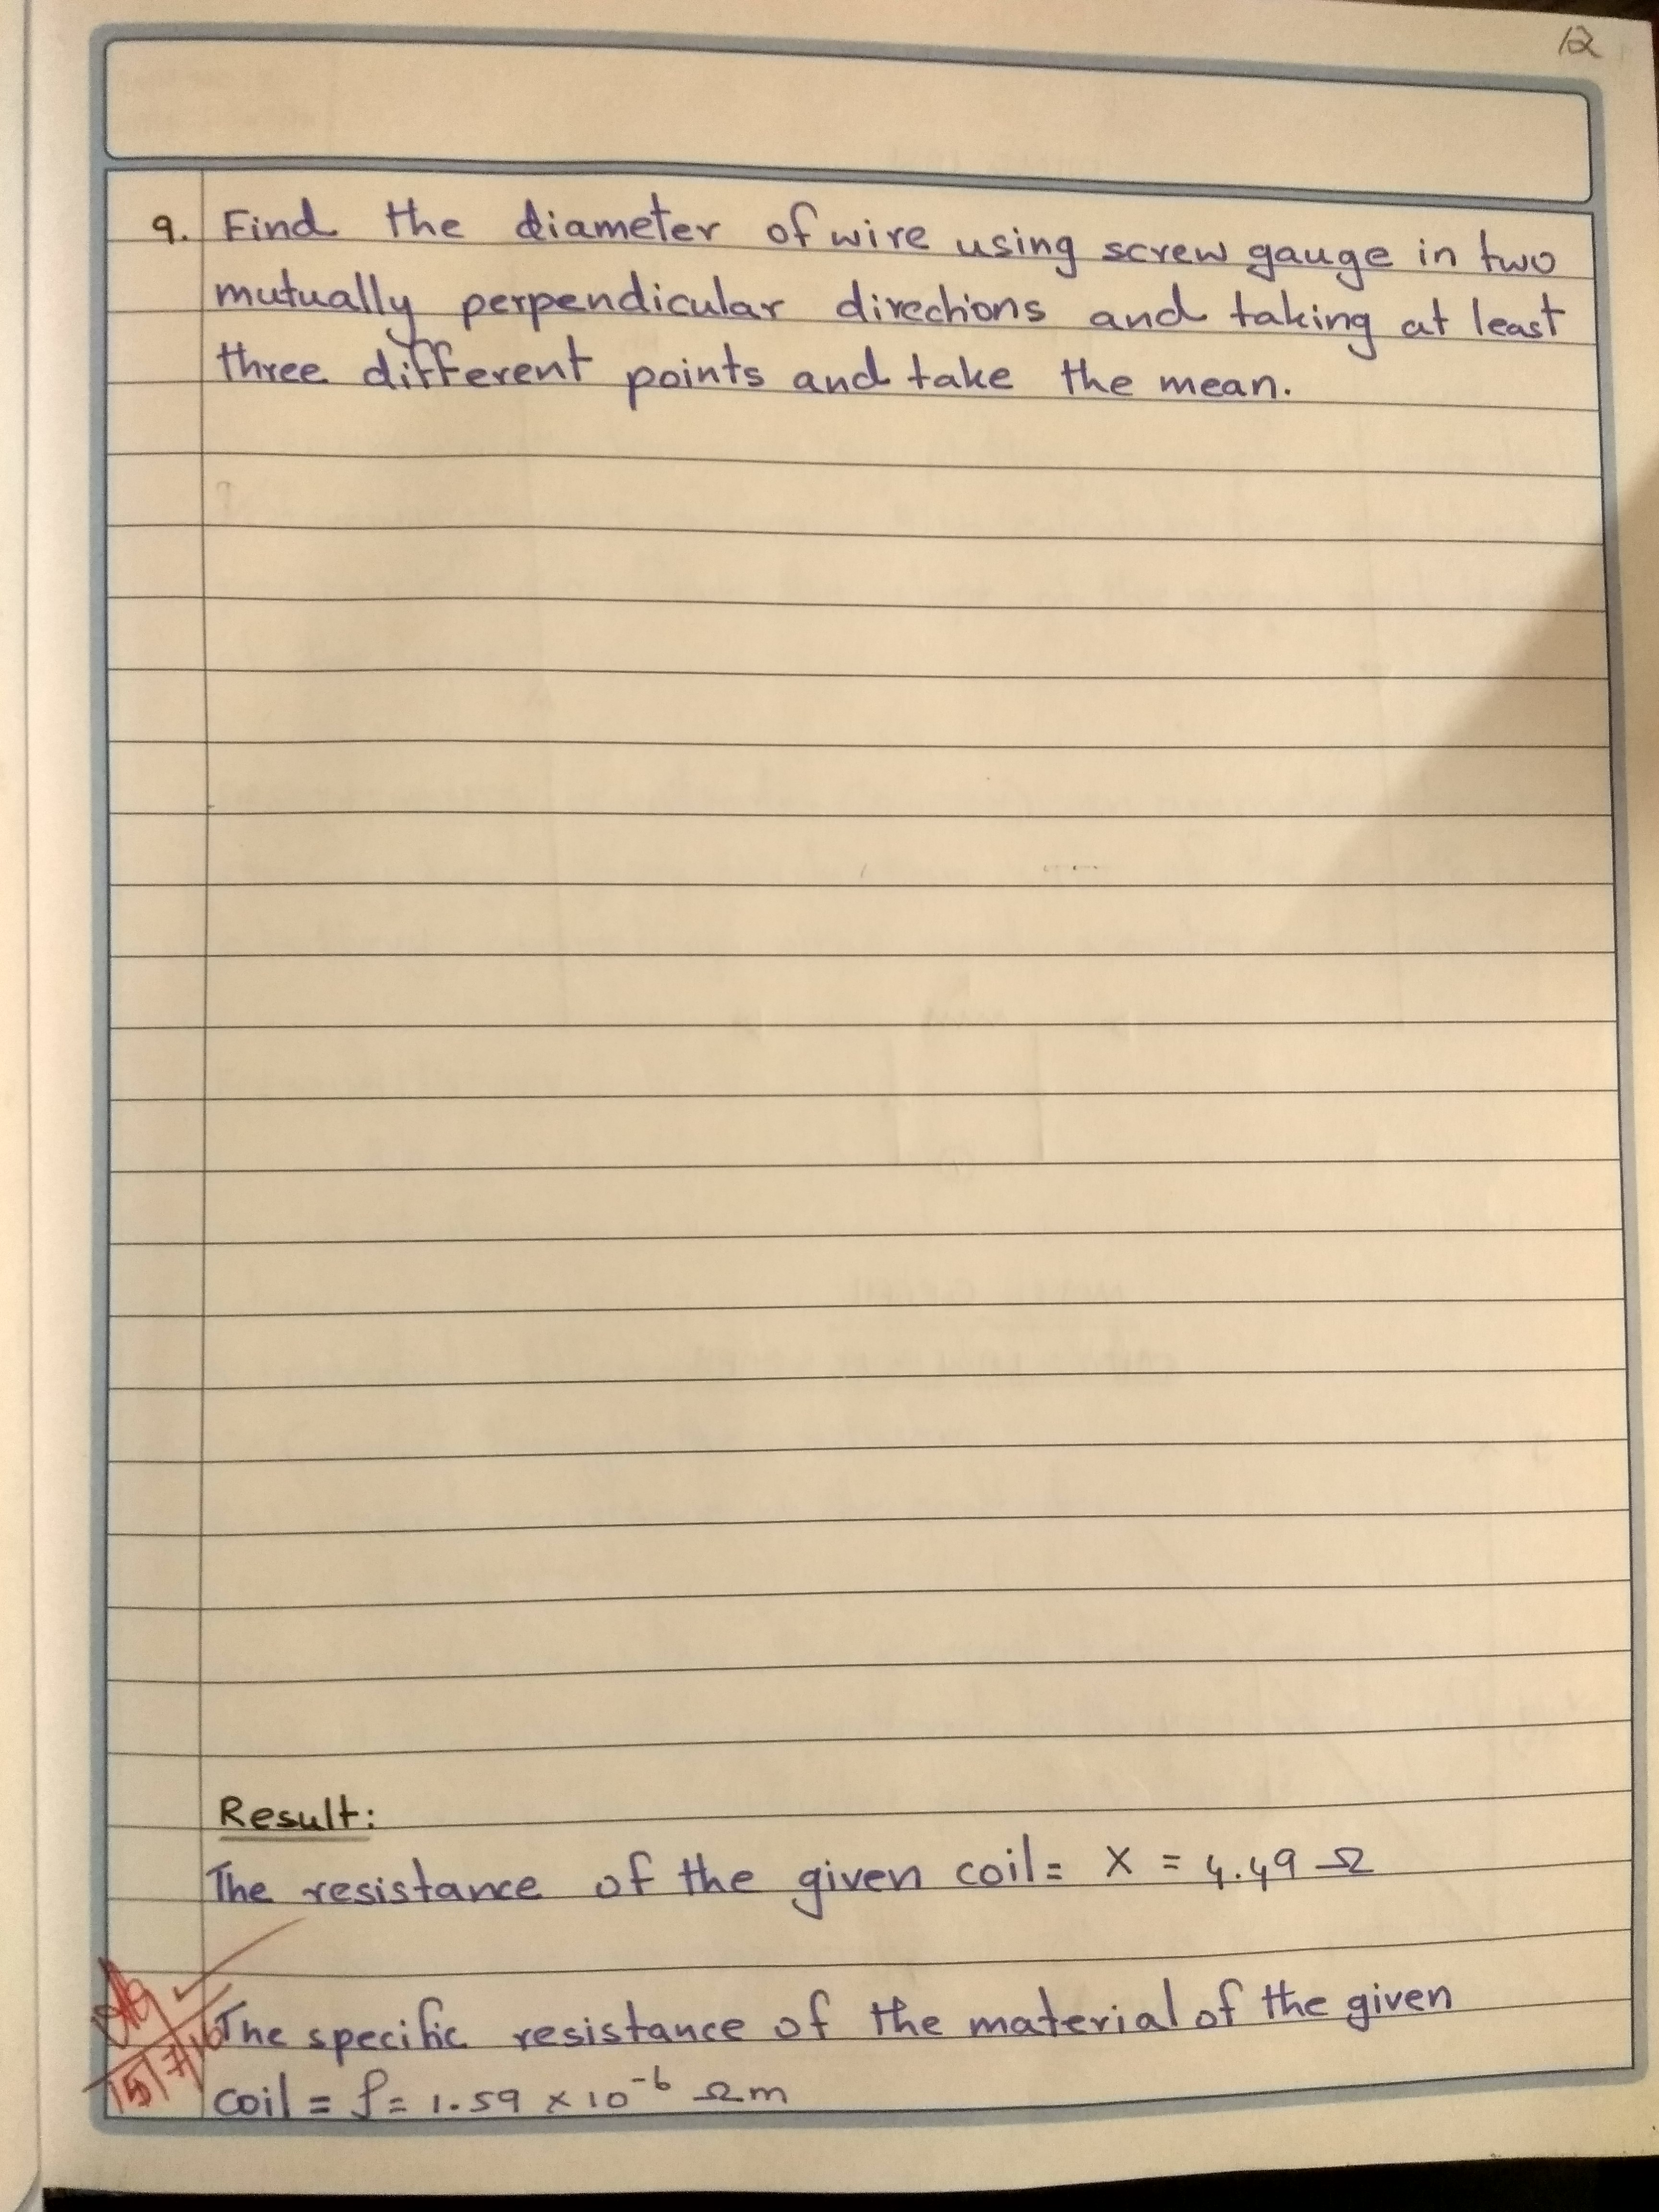 12
9. Find the diameter of wire using screw gauge in two
mutually perpendicular directions and taking at least
three different points and take the mean.
Result:
The resistance of the given coil = X = 4.49 Ω
The specific resistance of the material of the given
coil = ρ = 1.59 × 10⁻⁶ Ωm
15/7/16